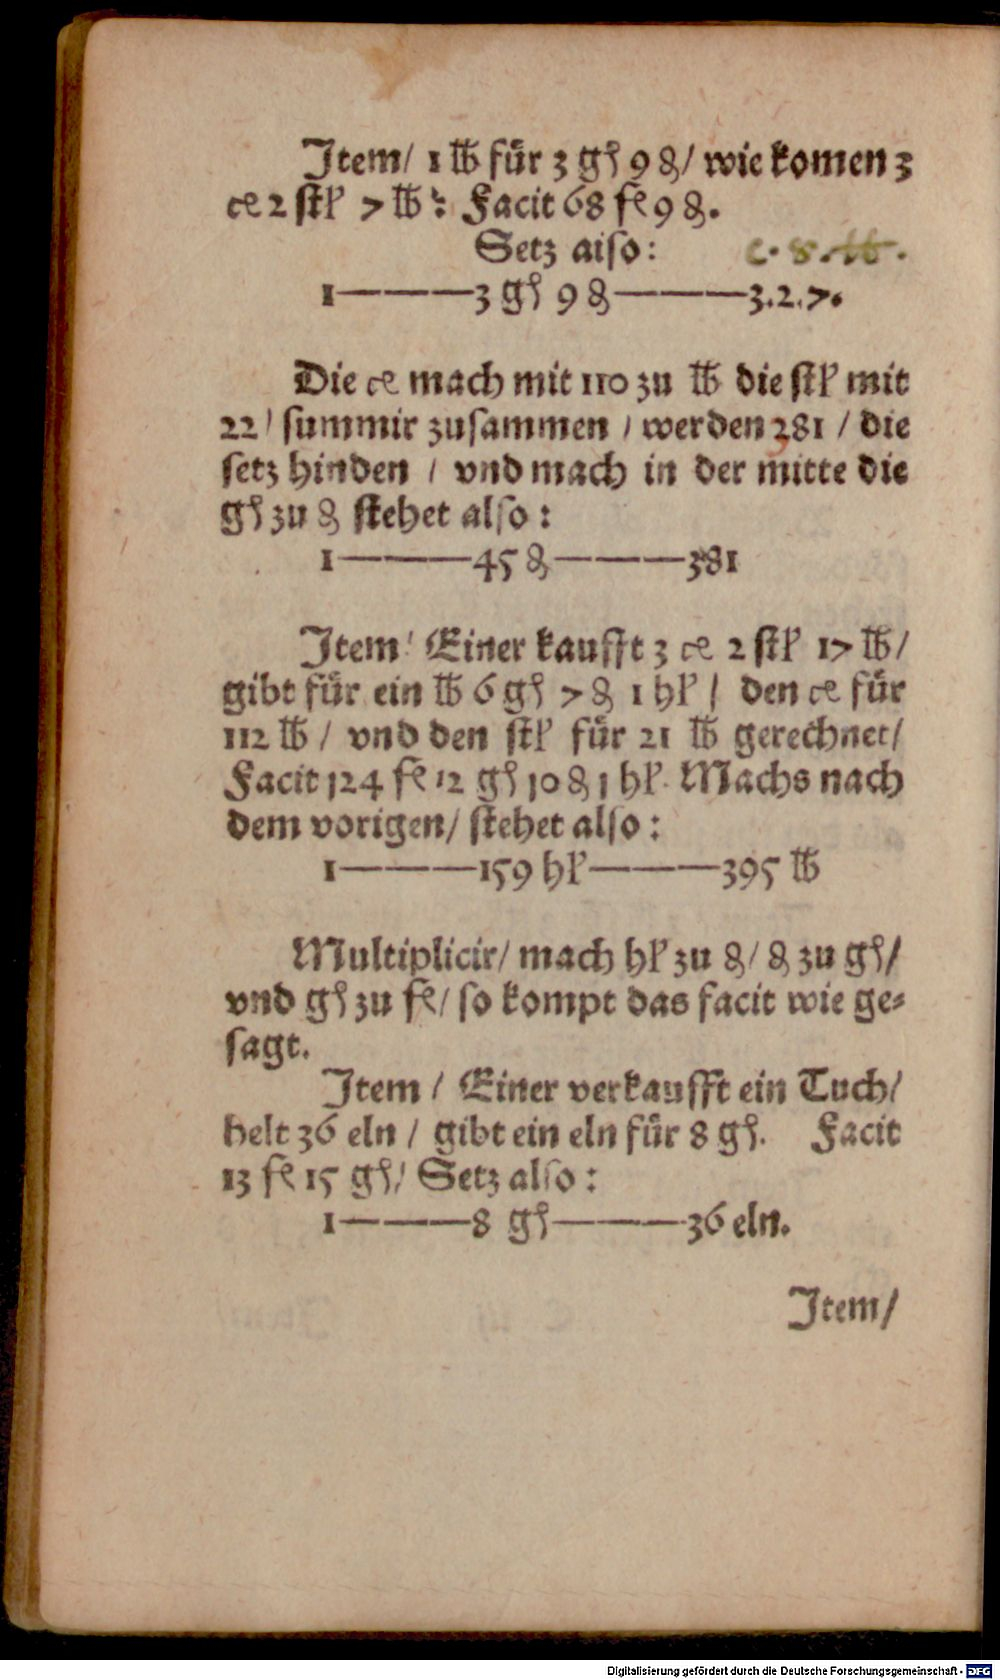 Item/ 1 ℔ für 3 gß 9 ₰/ wie komen 3
ce 2 stk 7 ℔: Facit 68 fl 9 ₰.
Setz also: c. s. ℔.
1———3 gß 9 ₰———3.2.7.
Die ce mach mit 110 zu ℔ die stk mit
22/ summir zusammen / werden 281 / die
setz hinden / vnd mach in der mitte die
gß zu ₰ stehet also:
1———45 ₰———381
Item/ Einer kaufft 3 ce 2 stk 17 ℔/
gibt für ein ℔ 6 gß 7 ₰ 1 hl / den ce für
112 ℔ / vnd den stk für 21 ℔ gerechnet/
Facit 124 fl 12 gß 10 ₰ 1 hl. Machs nach
dem vorigen/ stehet also:
1———159 hl———395 ℔
Multiplicir/ mach hl zu ₰/ ₰ zu gß/
vnd gß zu fl/ so kompt das facit wie ge-
sagt.
Item / Einer verkaufft ein Tuch/
helt 36 eln / gibt ein eln für 8 gß. Facit
13 fl 15 gß/ Setz also:
1———8 gß———36 eln.
Item/
Digitalisierung gefördert durch die Deutsche Forschungsgemeinschaft - DFG